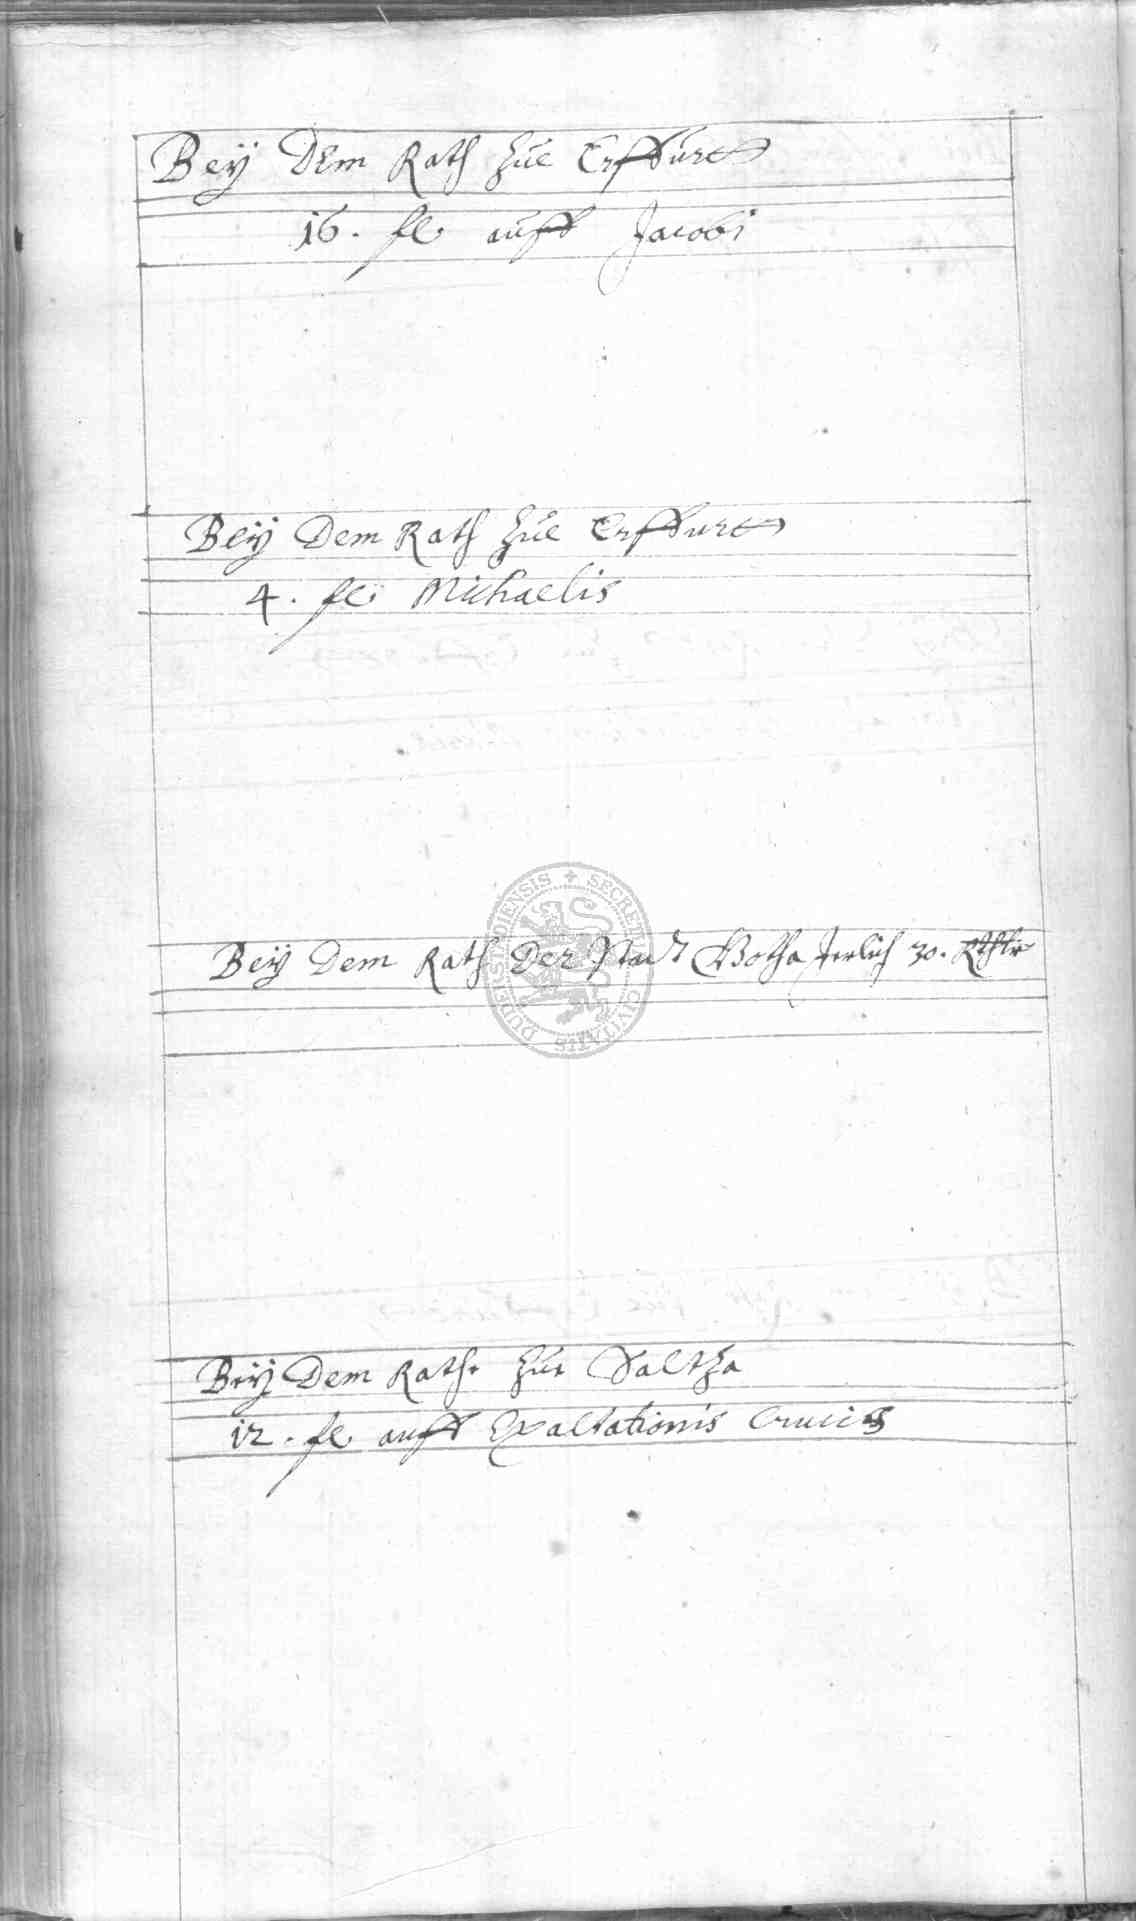 Beÿ Dem Rath Zúe Erffúrtt
16. fl. aúff Jacobi
Beÿ Dem Rath Zúe Erffurtt
4. fl. Michaelis
Beÿ Dem Rath Der Stadt Gotha Jerlich 30. Rthlr
Beÿ Dem Rathe Zue Saltza
12. fl. auff Exaltationis Crucis
SECRET CIVITATIS DUDERSTADIENSIS